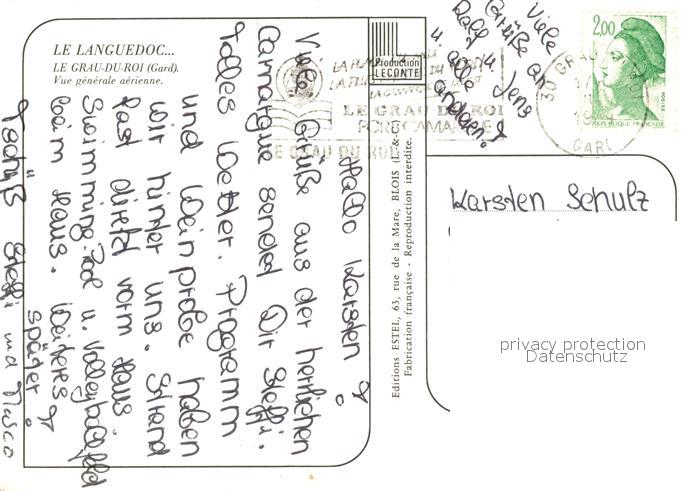 LE LANGUEDOC...
LE GRAU-DU-ROI (Gard).
Vue générale aérienne.
Production
LECONTE
LE GRAU DU ROI
PORT CAMARGUE
LE GRAU DU ROI
30 GRAU
GARD
2,00
POSTES
REPUBLIQUE FRANCAISE
Viele
Grüße an
Ralf u. Jens
u. alle
anderen!
Hallo Karsten!
Viele Grüße aus der herrlichen
Camargue sendet Dir Steffi.
Tolles Wetter. Programm
und Weinprobe haben
wir hinter uns. Strand
fast direkt vorm Haus
Swimming-Pool u. Volleyballfeld
beim Haus. Weiteres
später!
Tschüß Steffi und
Editions ESTEL, 63, rue de la Mare, BLOIS (L.-&-C.)
Fabrication française - Reproduction interdite.
Karsten Schulz
privacy protection
Datenschutz